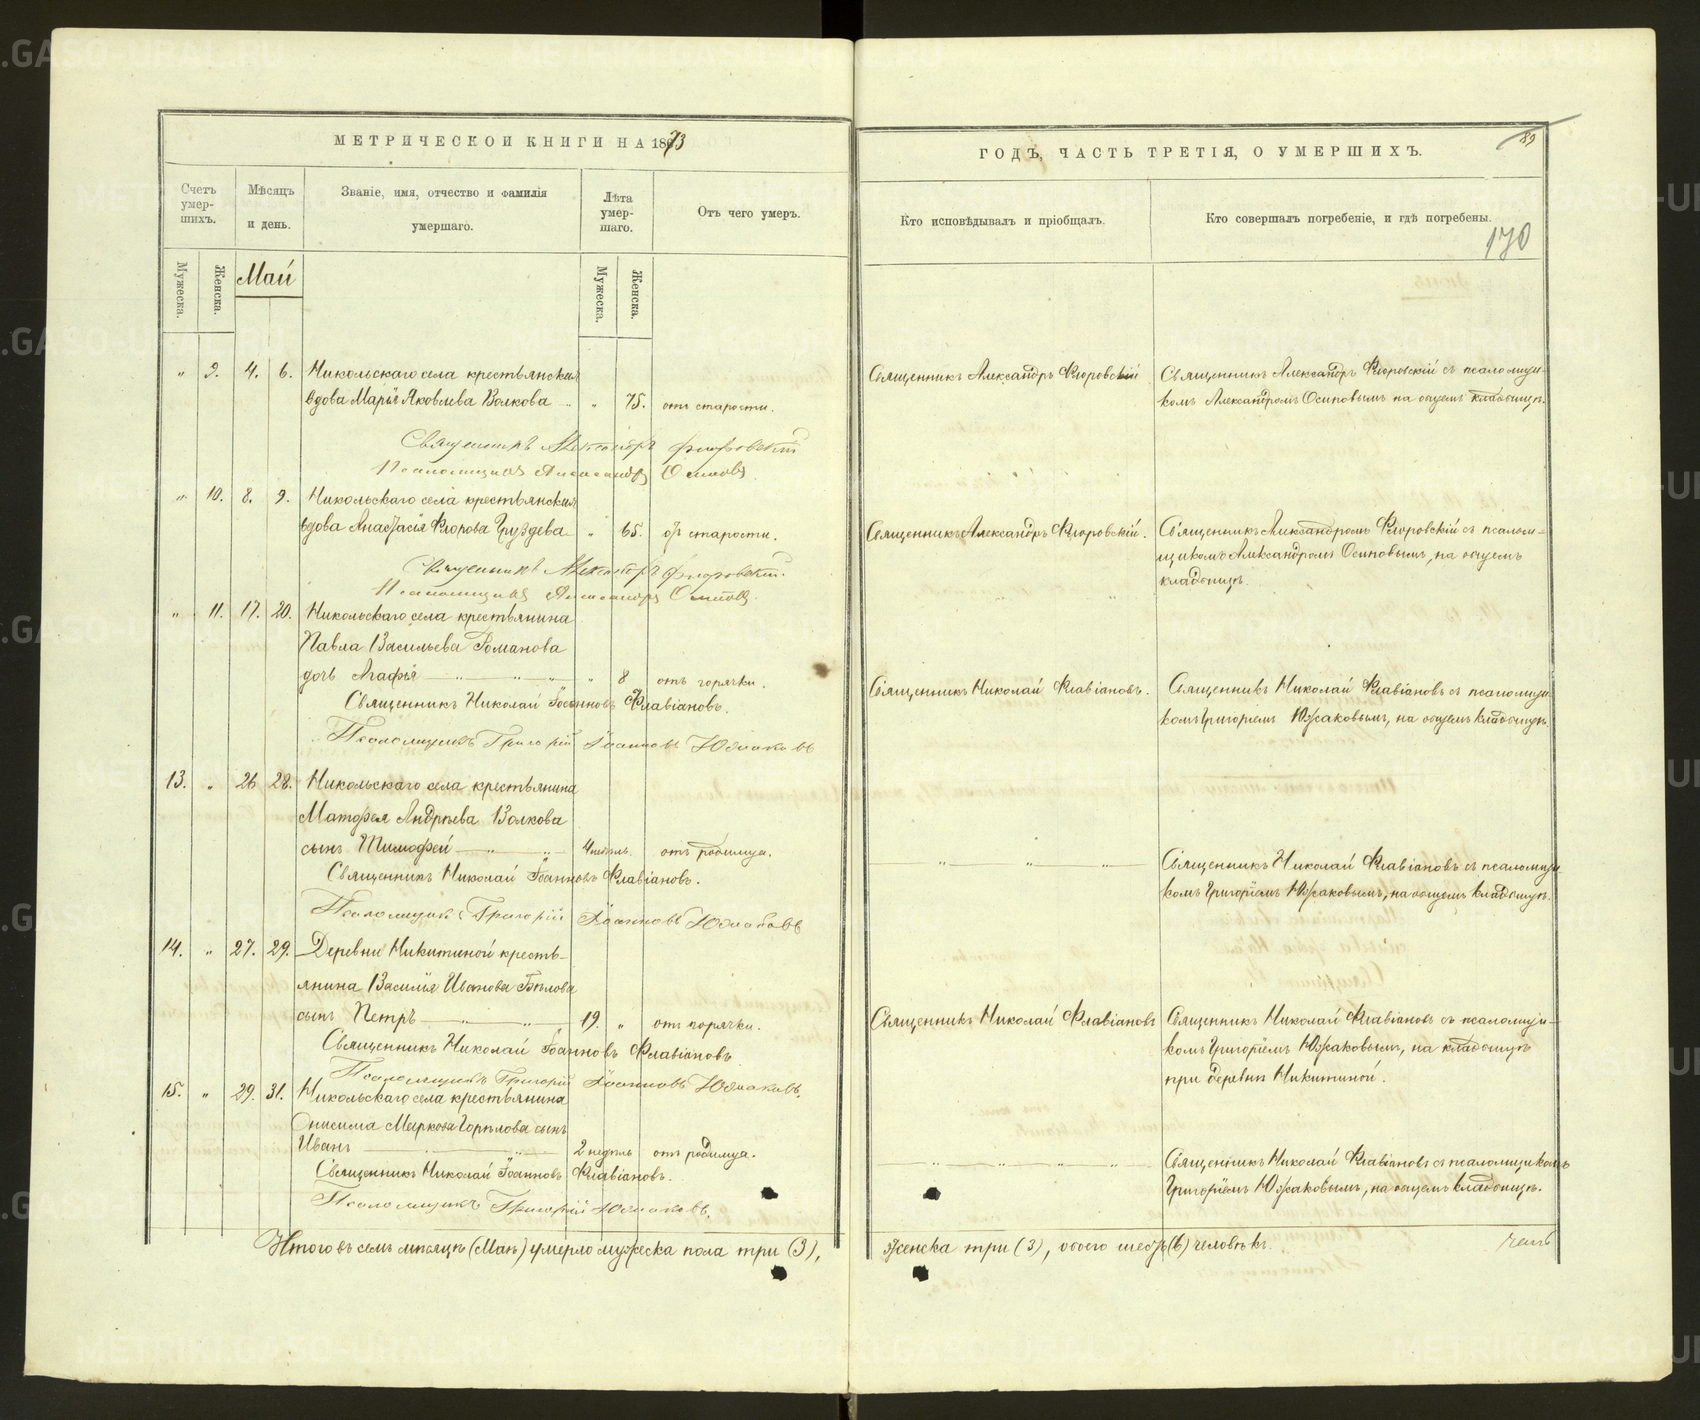 МЕТРИЧЕСКОЙ КНИГИ НА 1873
Счетъ умер-шихъ.
Мѣсяцъ и день.
Званіе, имя, отчество и фамилія умершаго.
Лѣта умер-шаго.
Отъ чего умеръ.
Мужеска.
Женска.
Май
Мужеска.
Женска.
„ 9. 4. 6. Никольскаго села крестьянская
вдова Марія Яковлева Волкова „ 75. отъ старости.
Священникъ Александръ Флоровскій
Псаломщикъ Александръ Осиповъ
„ 10. 8. 9. Никольскаго села крестьянская
вдова Анастасія Флорова Груздева „ 65. отъ старости.
Священникъ Александръ Флоровскій.
Псаломщикъ Александръ Осиповъ.
„ 11. 17. 20. Никольскаго села крестьянина
Павла Васильева Романова
дочь Агафія „ 8 отъ горячки.
Священникъ Николай Іоанновъ Флавіановъ.
Псаломщикъ Григорій Іоанновъ Южаковъ
13. „ 26 28. Никольскаго села крестьянина
Матфея Андреева Волкова
сынъ Тимофей 4 недѣль. отъ родимца.
Священникъ Николай Іоанновъ Флавіановъ.
Псаломщикъ Григорій Іоанновъ Южаковъ
14. „ 27. 29. Деревни Никитиной кресть-
янина Василія Иванова Бѣлова
сынъ Петръ 19. „ отъ горячки.
Священникъ Николай Іоанновъ Флавіановъ
Псаломщикъ Григорій Іоанновъ Южаковъ.
15. „ 29. 31. Никольскаго села крестьянина
Онисима Маркова Горѣлова сынъ
Иванъ 2 недѣль отъ родимца.
Священникъ Николай Іоанновъ Флавіановъ.
Псаломщикъ Григорій Южаковъ.
Итого въ семъ мѣсяцѣ (Маѣ) умерло мужеска пола три (3),
89
ГОДЪ, ЧАСТЬ ТРЕТІЯ, О УМЕРШИХЪ.
Кто исповѣдывалъ и пріобщалъ.
Кто совершалъ погребеніе, и гдѣ погребены.
170
Священникъ Александръ Флоровскій
Священникъ Александръ Флоровскій съ псаломщи-
комъ Александромъ Осиповымъ на общемъ кладбищѣ.
Священникъ Александръ Флоровскій.
Священникъ Александромъ Флоровскій съ псалом-
щикомъ Александромъ Осиповымъ, на общемъ
кладбищѣ.
Священникъ Николай Флавіановъ.
Священникъ Николай Флавіановъ съ псаломщи-
комъ Григоріемъ Южаковымъ, на общемъ кладбищѣ.
Священникъ Николай Флавіановъ съ псаломщи-
комъ Григоріемъ Южаковымъ, на общемъ кладбищѣ.
Священникъ Николай Флавіановъ
Священникъ Николай Флавіановъ съ псаломщи-
комъ Григоріемъ Южаковымъ, на кладбищѣ
при деревнѣ Никитиной.
Священникъ Николай Флавіановъ съ псаломщикомъ
Григоріемъ Южаковымъ, на общемъ кладбищѣ.
женска три (3), обоего шесть (6) человѣкъ.
METRIKI.GASO-URAL.RU